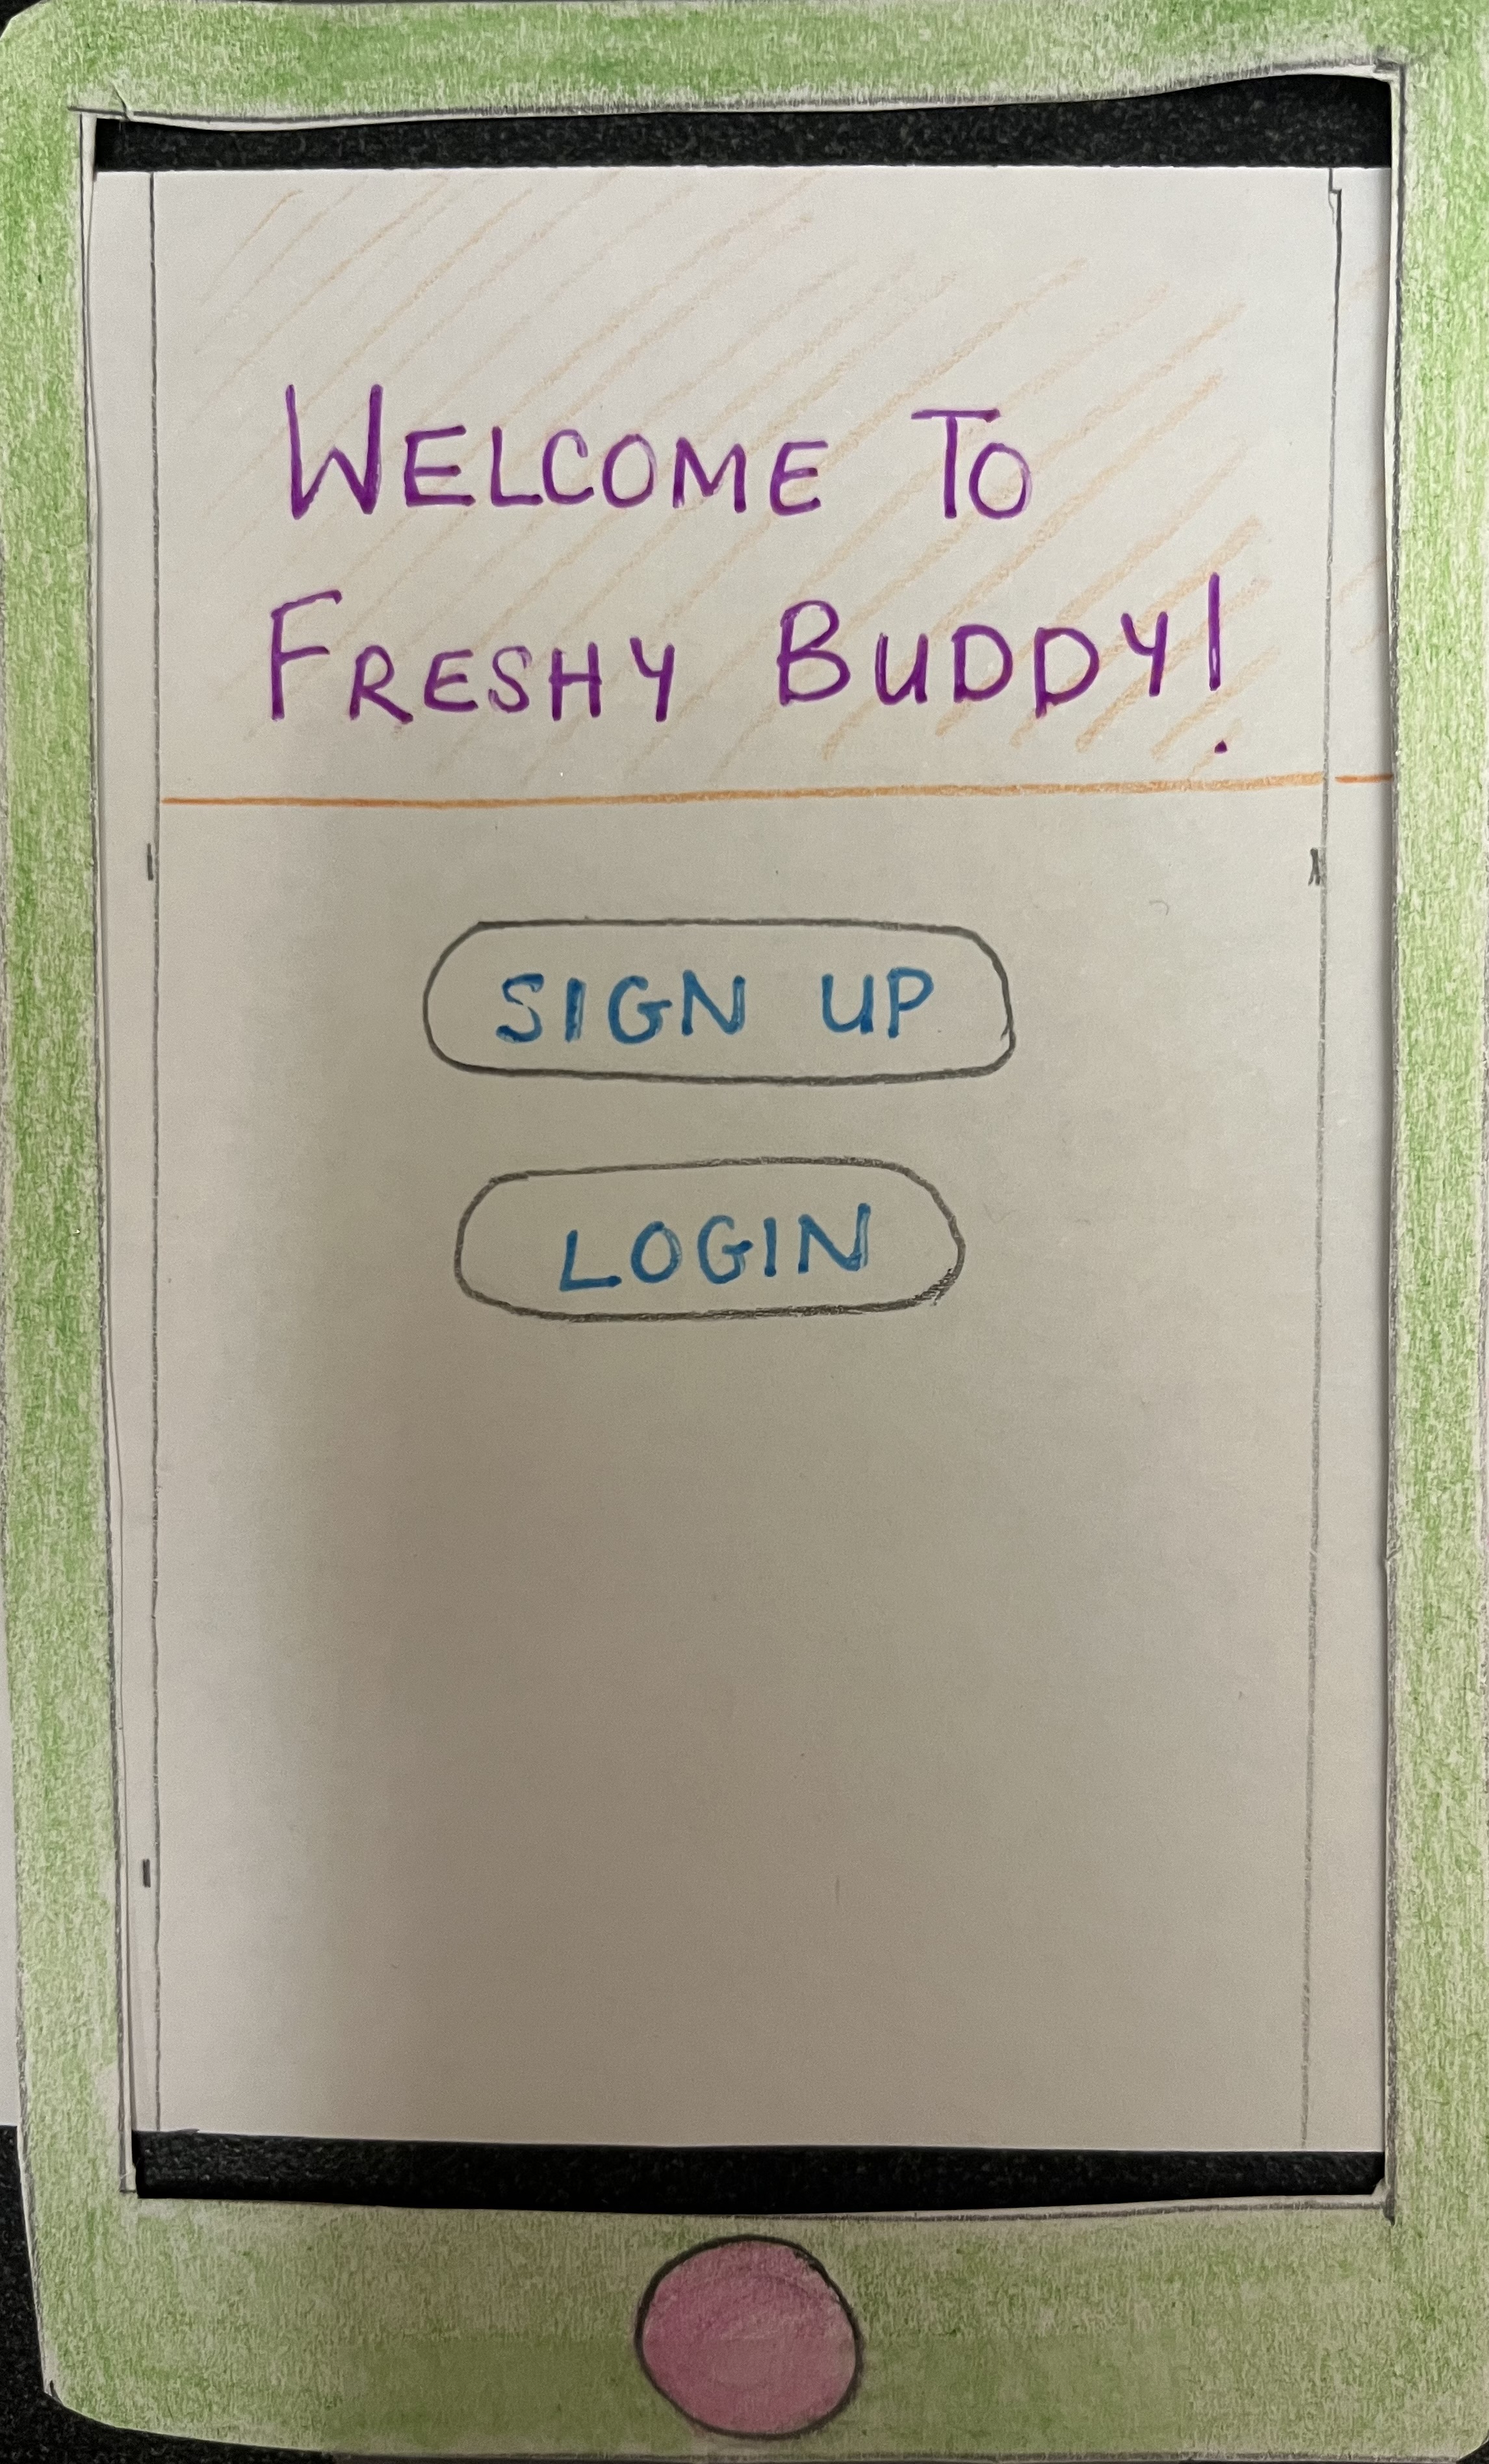 WELCOME TO
FRESHY BUDDY!
SIGN UP
LOGIN